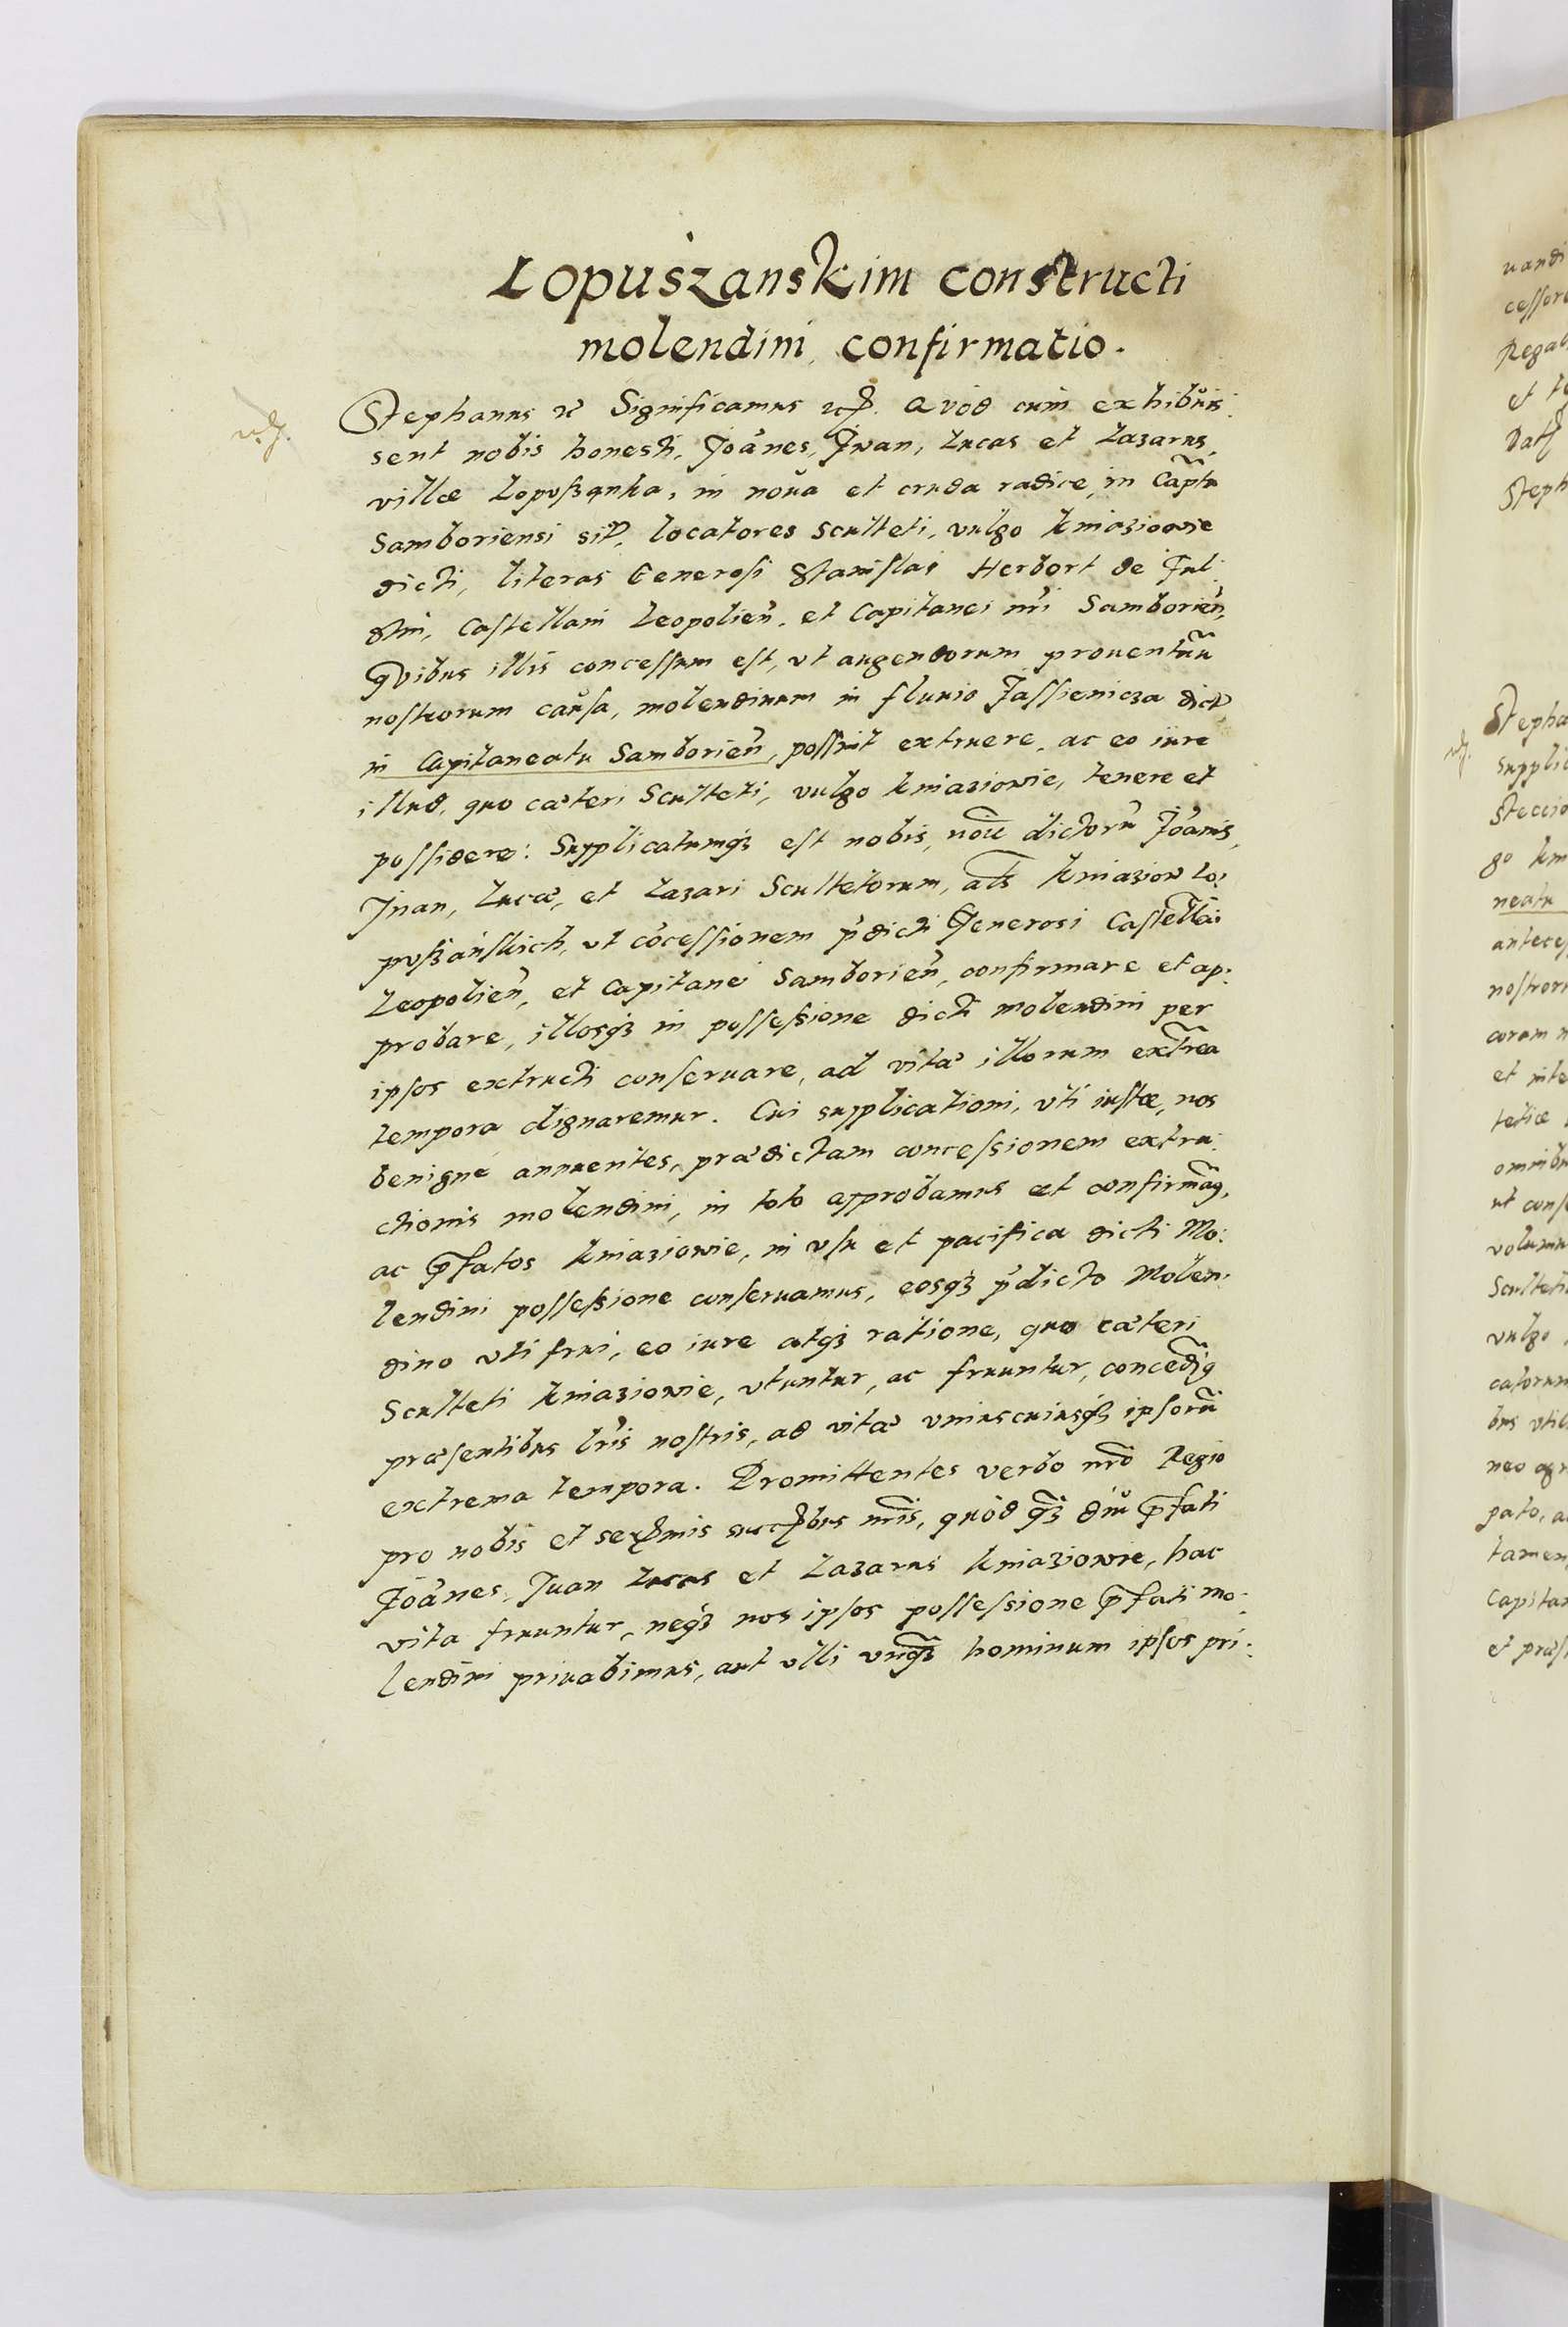 Lopuszanskim constructi
molendini confirmatio.
Stephanus etc Significamus etc. Quod cum exhibuis:
sent nobis honesti, Joānes, Jwan, Lucas et Lazarus,
villæ Lopußanka, in noua et cruda radice, in Capťu
Samboriensi sit, locatores Sculteti, vulgo kniaziowie
dicti, literas Generosi Stanislai Herbort de Ful:
stin, Castellani Leopolieñ. et Capitanei nr̃i Samborieñ,
quibus illis concessum est, vt augendorum prouentuũ
nostrorum causa, molendinum in fluuio Jassienicza dict,
in Capitaneatu Samborieñ, possint extruere, ac eo iure
illud, quo cæteri Sculteti, vulgo kniaziowie, tenere et
possidere: Supplicatumq3 est nobis, noĩe dictorũ Joānis,
Jvan, Lucæ, et Lazari Scultetorum, al̃s kniaziow Lo:
pußańskich, vt cõcessionem p̃dicti Generosi Castell̃ai
Leopolieñ, et Capitanei Samborieñ, confirmare et ap:
probare, illosq3 in possessione dicti molendini per
ipsos extructi conseruare, ad vitæ illorum extrẽa
tempora dignaremur. Cui supplicationi, vti iustæ, nos
benignè annuentes, prædictam concessionem extru:
ctionis molendini, in toto approbamus et confirmãq,
ac p̃fatos kniaziowie, in vsu et pacifica dicti Mo:
lendini possessione conseruamus, eosq3 p̃dicto Molen:
dino vti frui, eo iure atq3 ratione, quo cæteri
Sculteti kniaziowie, vtuntur, ac fruuntur, concedĩq
præsentibus lr̃is nostris, ad vitæ vniuscuiusq3 ipsorũ
extrema tempora. Promittentes verbo nr̃o Regio
pro nobis et serẽmis succ̃bus nr̃is, quòd q̃3 diu p̃fati
Joānes, Juan Lucas et Lazarus kniaziowie, hac
vita fruuntur, neq3 nos ipsos possessione p̃fati mo:
lendini priuabimus, aut vlli vnq̃3 hominum ipsos pri: